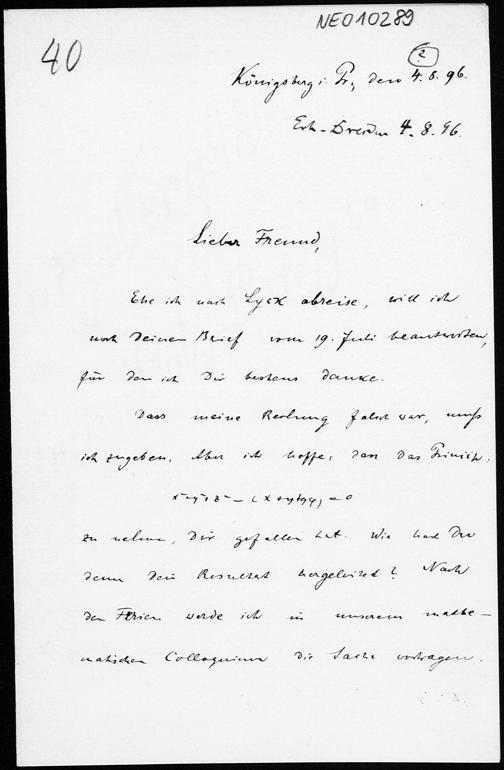 NEO10289
40
?
Königsberg i. Pr, den 4.8.96.
4.8.96.
Lieber Freund,
Ehe ich nach Lyck abreise, will ich
noch Deinen Brief vom 19. Juli beantworten,
für den ich Dir bestens danke.
Dass meine Rechnung falsch war, muß
ich zugeben. Aber ich hoffe, dass das
zu nehmen, Dir gefallen hat. Wie hast Du
denn Dein Resultat hergeleitet? Nach
den Ferien werde ich in unserem mathe-
matischen Colloquium die Sache vortragen.